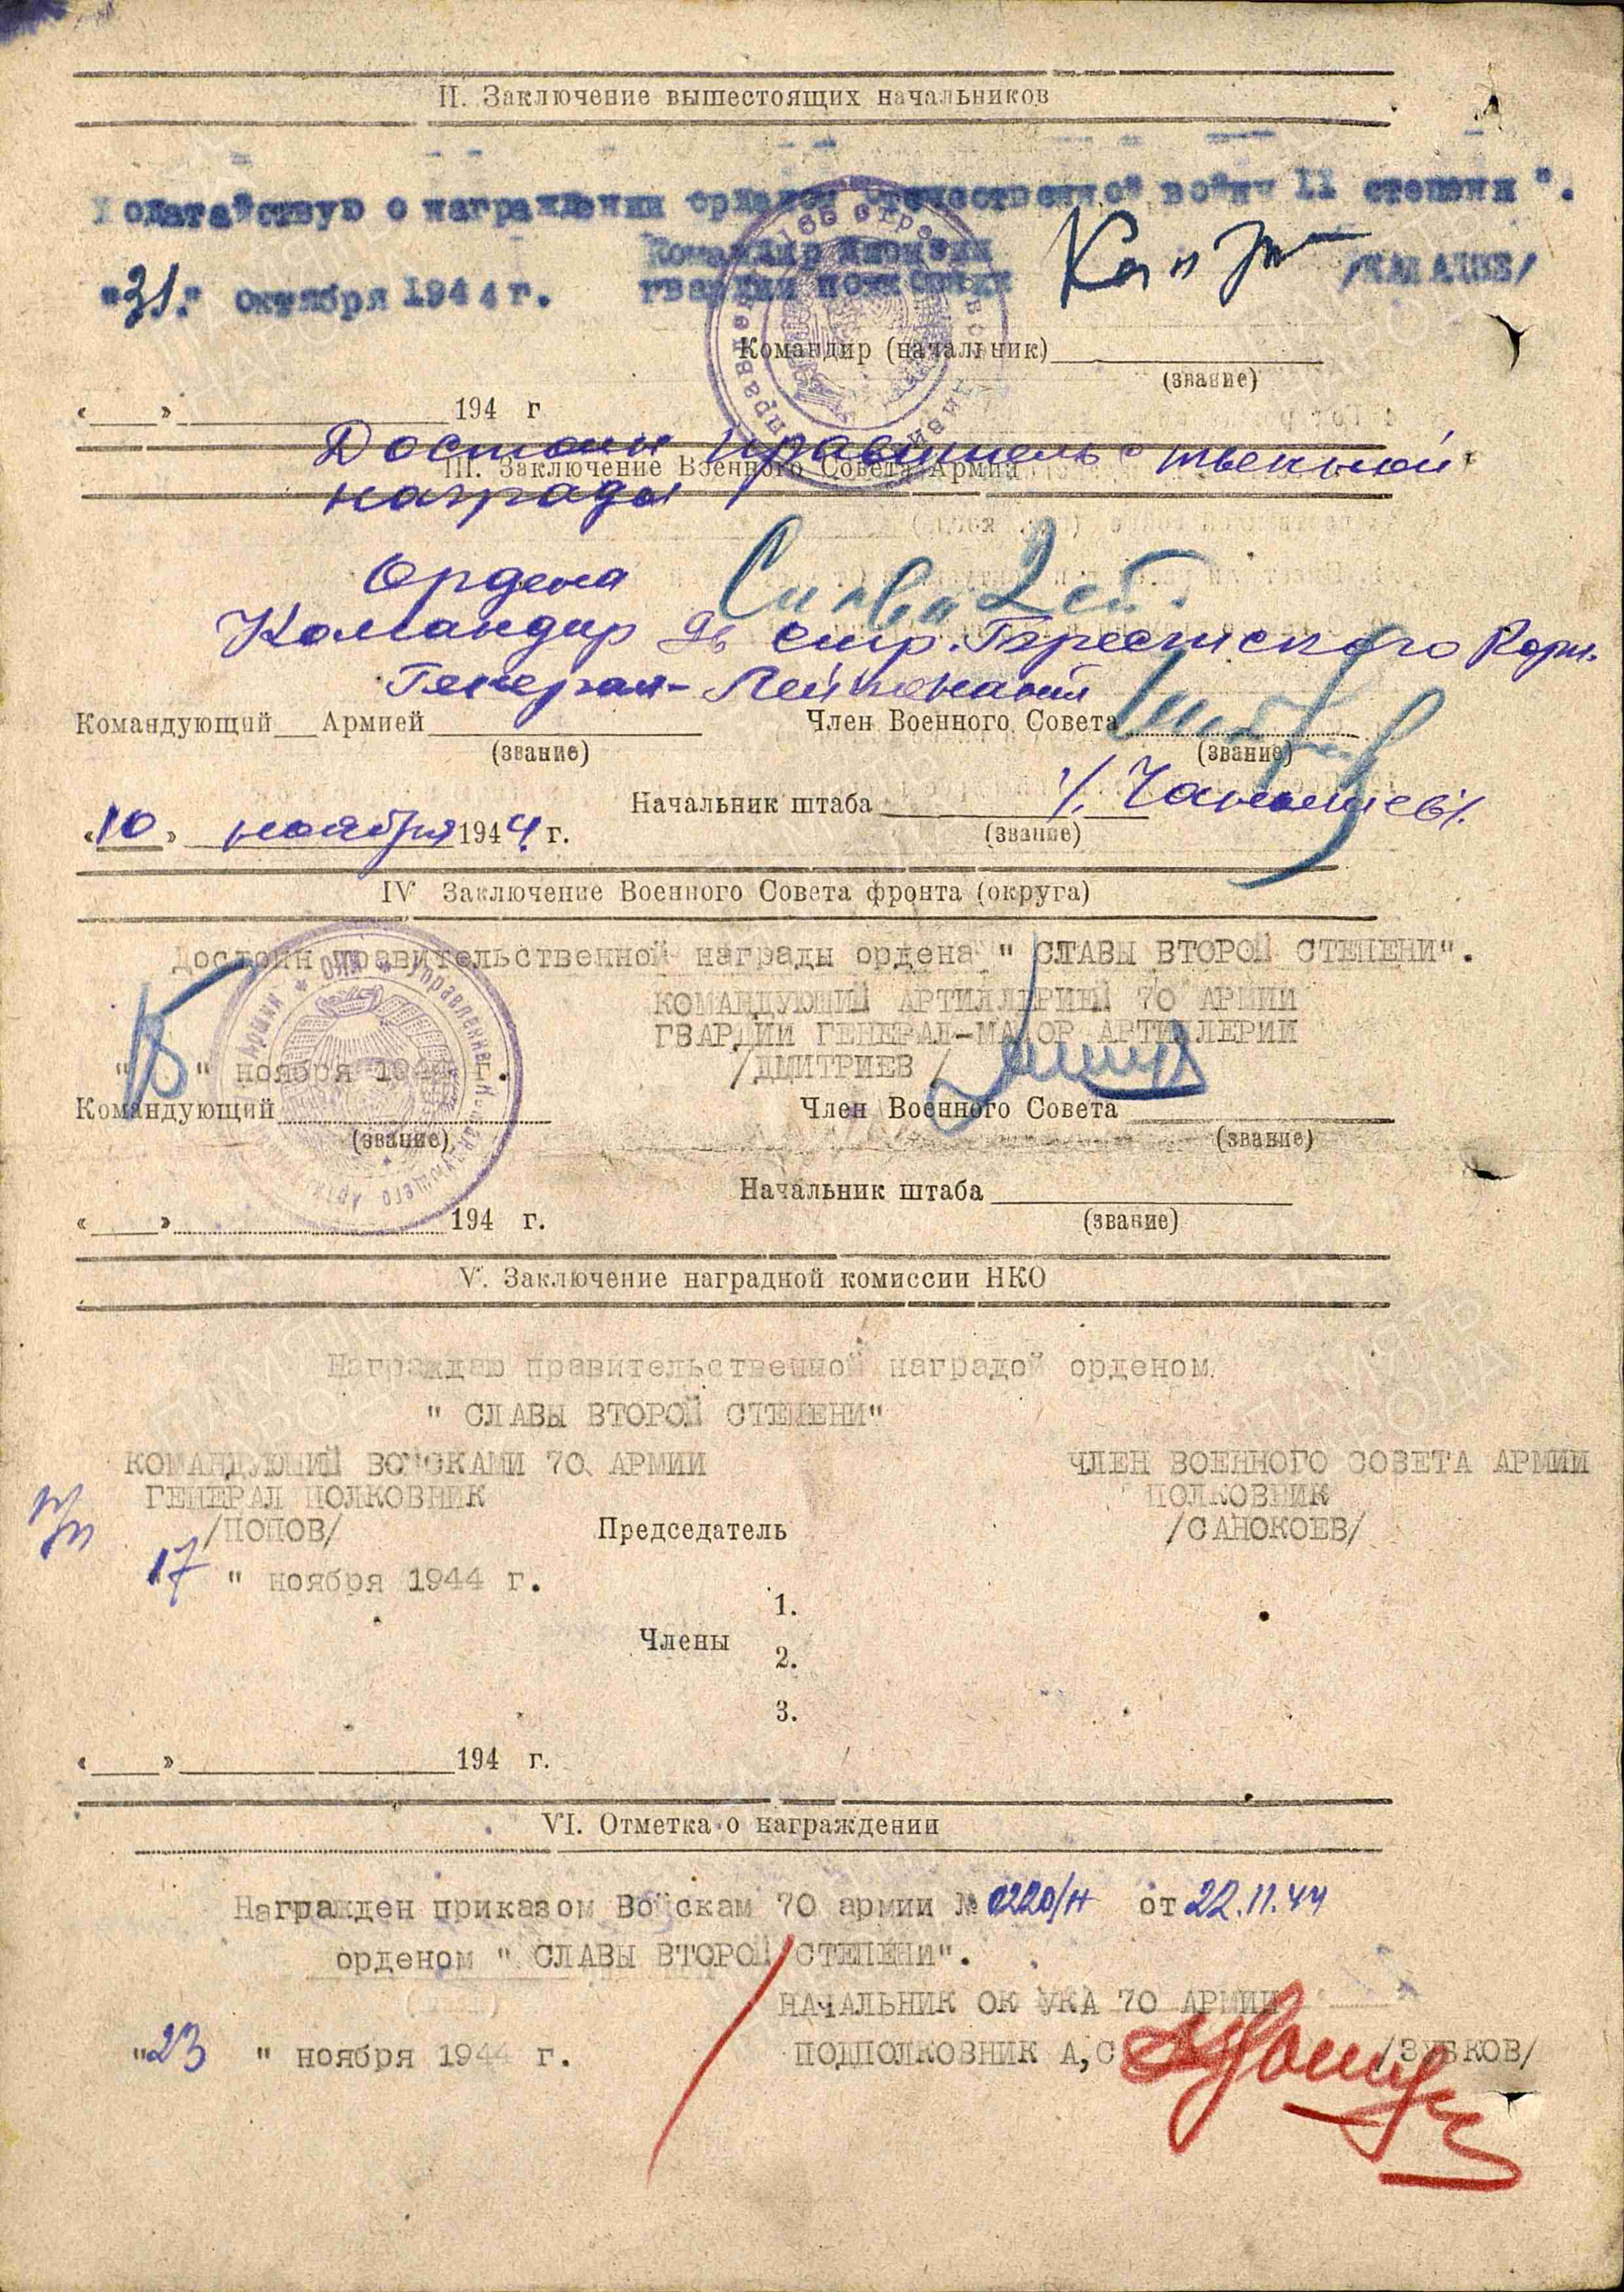 II. Заключение вышестоящих начальников
Ходатайствую о награждении орденом Отечественной войны II степени".
Командир дивизии
гвардии полковник
"31." октября 1944 г.
Командир (начальник)
(звание)
« » 194 г
Достоин правительственной
III. Заключение Военного Совета Армии
награды
Ордена Славы 2 ст.
Командир 96 стр. Брестского Корп.
Генерал-Лейтенант
Командующий Армией Член Военного Совета
(звание) (звание)
Начальник штаба /. Чанышев/.
(звание)
«10» ноября 1944 г.
IV Заключение Военного Совета фронта (округа)
Достоин правительственной награды ордена " СЛАВЫ ВТОРОЙ СТЕПЕНИ".
КОМАНДУЮЩИЙ АРТИЛЛЕРИЕЙ 70 АРМИИ
ГВАРДИИ ГЕНЕРАЛ-МАЙОР АРТИЛЛЕРИИ
/ДМИТРИЕВ /
"15" ноября 1944 г.
Командующий Член Военного Совета
(звание) (звание)
Начальник штаба
« » 194 г. (звание)
V. Заключение наградной комиссии НКО
Награждаю правительственной наградой орденом
" СЛАВЫ ВТОРОЙ СТЕПЕНИ"
КОМАНДУЮЩИЙ ВОЙСКАМИ 70 АРМИИ ЧЛЕН ВОЕННОГО СОВЕТА АРМИИ
ГЕНЕРАЛ ПОЛКОВНИК ПОЛКОВНИК
п/п /ПОПОВ/ Председатель /САНОКОЕВ/
17 " ноября 1944 г.
1.
Члены
2.
3.
« » 194 г.
VI. Отметка о награждении
Награжден приказом Войскам 70 армии № 0220/н от 22.11.44
орденом " СЛАВЫ ВТОРОЙ СТЕПЕНИ".
НАЧАЛЬНИК ОК УКА 70 АРМИИ
"23 " ноября 1944 г. ПОДПОЛКОВНИК А,С /ЗУБКОВ/